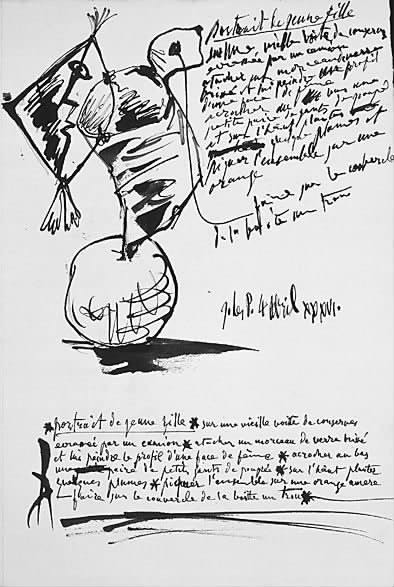 portrait de jeune fille
sur une vieille boite de conserves
ecrasée par un camion
atacher un morceau de verre
brisé et lui peindre profil
d'une face de
acrocher au bas une
petite paire de gants de poupée
et sur l'haut planter
plumes et
piquer l'ensemble sur une
orange
faire sur le couvercle
de la boite un trou
4 Abril XXXVI.
*portrait de jeune fille * sur une vieille boite de conserves
ecrasée par un camion * atacher un morceau de verre brisé
et lui peindre le profil d'une face de feme * acrocher au bas
une paire de petits gants de poupée * sur l'haut plantre
quelques plumes * piquer l'ensemble sur une orange amere
faire sur le couvercle de la boite un trou *